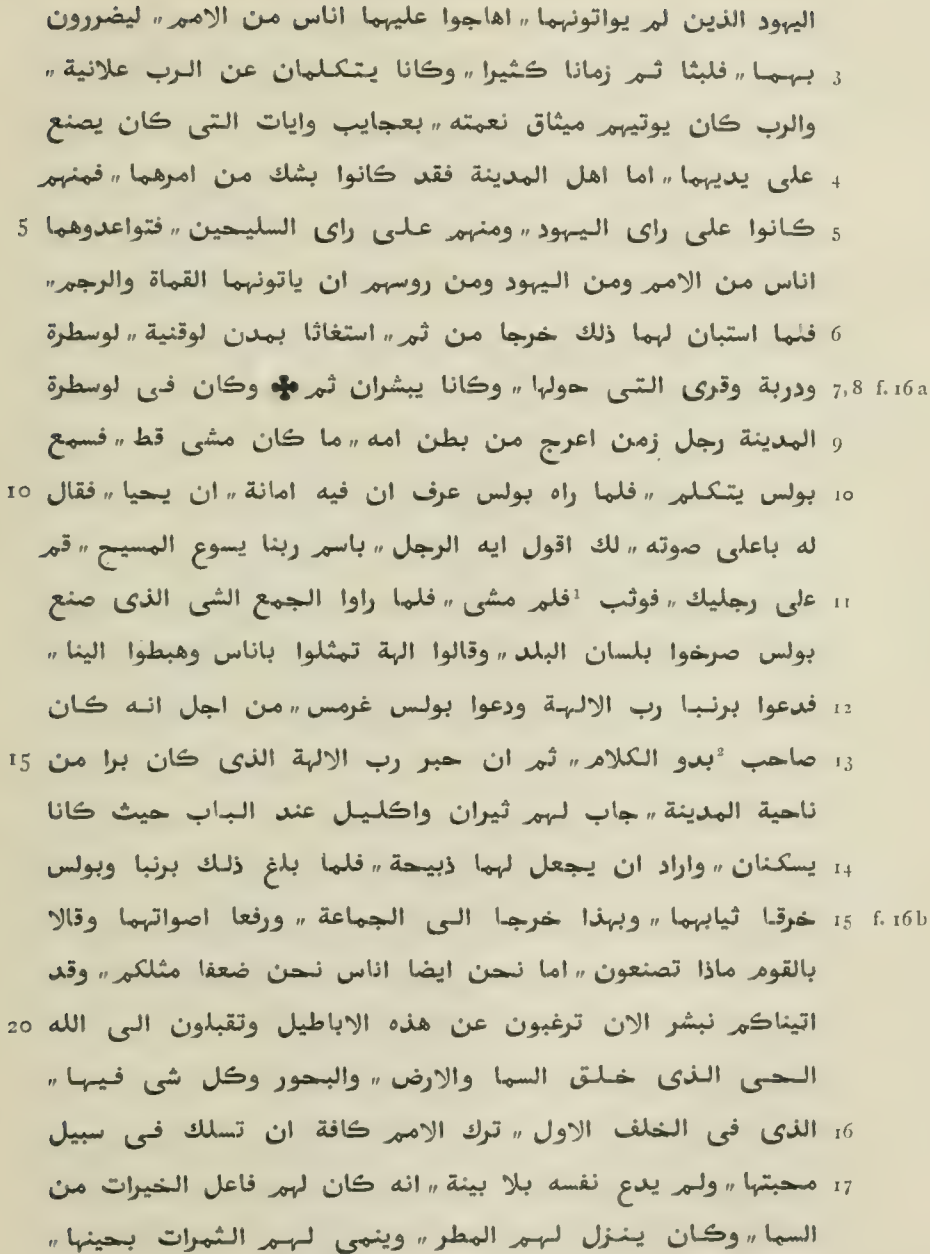 اليهود الذين لم يواتونهما ״ اهاجوا عليهما اناس من الامم ״ ليضررون
3 بهما ״ فلبثا ثم زمانا كثيرا ״ وكانا يتكلمان عن الرب علانية ״
والرب كان يوتيهم ميثاق نعمته ״ بعجايب وايات التى كان يصنع
4 على يديهما ״ اما اهل المدينة فقد كانوا بشك من امرهما ״ فمنهم
5 كانوا على راى اليهود ״ ومنهم على راى السليحين ״ فتواعدوهما 5
اناس من الامم ومن اليهود ومن روسهم ان ياتونهما القماة والرجم ״
6 فلما استبان لهما ذلك خرجا من ثم ״ استغاثا بمدن لوقنية ״ لوسطرة
7,8 f. 16 a ودربة وقرى التى حولها ״ وكانا يبشران ثم ✤ وكان فى لوسطرة
9 المدينة رجل زمن اعرج من بطن امه ״ ما كان مشى قط ״ فسمع
10 بولس يتكلم ״ فلما راه بولس عرف ان فيه امانة ״ ان يحيا ״ فقال 10
له باعلى صوته ״ لك اقول ايه الرجل ״ باسم ربنا يسوع المسيح ״ قم
11 على رجليك ״ فوثب ¹فلم مشى ״ فلما راوا الجمع الشى الذى صنع
بولس صرخوا بلسان البلد ״ وقالوا الهة تمثلوا باناس وهبطوا الينا ״
12 فدعوا برنبا رب الالهة ودعوا بولس غرمس ״ من اجل انه كان
13 صاحب ²بدو الكلام ״ ثم ان حبر رب الالهة الذى كان برا من 15
ناحية المدينة ״ جاب لهم ثيران واكليل عند الباب حيث كانا
14 يسكنان ״ واراد ان يجعل لهما ذبيحة ״ فلما بلغ ذلك برنبا وبولس
15 f. 16 b خرقا ثيابهما ״ وبهذا خرجا الى الجماعة ״ ورفعا اصواتهما وقالا
بالقوم ماذا تصنعون ״ اما نحن ايضا اناس نحن ضعفا مثلكم ״ وقد
اتيناكم نبشر الان ترغبون عن هذه الاباطيل وتقبلون الى الله 20
الحى الذى خلق السما والارض ״ والبحور وكل شى فيها ״
16 الذى فى الخلف الاول ״ ترك الامم كافة ان تسلك فى سبيل
17 محبتها ״ ولم يدع نفسه بلا بينة ״ انه كان لهم فاعل الخيرات من
السما ״ وكان ينزل لهم المطر ״ وينمى لهم الثمرات بحينها ״